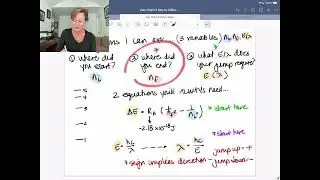 (3 variables) ni, nf, E/λ
① where did you start?
ni
② where did you end?
nf
③ what E/λ does your jump require?
E (λ)
2 equations you'll ALWAYS need...
5
4
3
2
1
ΔE = RH (1/nf² - 1/ni²)
start here
-2.18 x10-18 J
E = hc/λ
λ = hc/E
start here
*sign implies direction - jump up - +
jump down - -